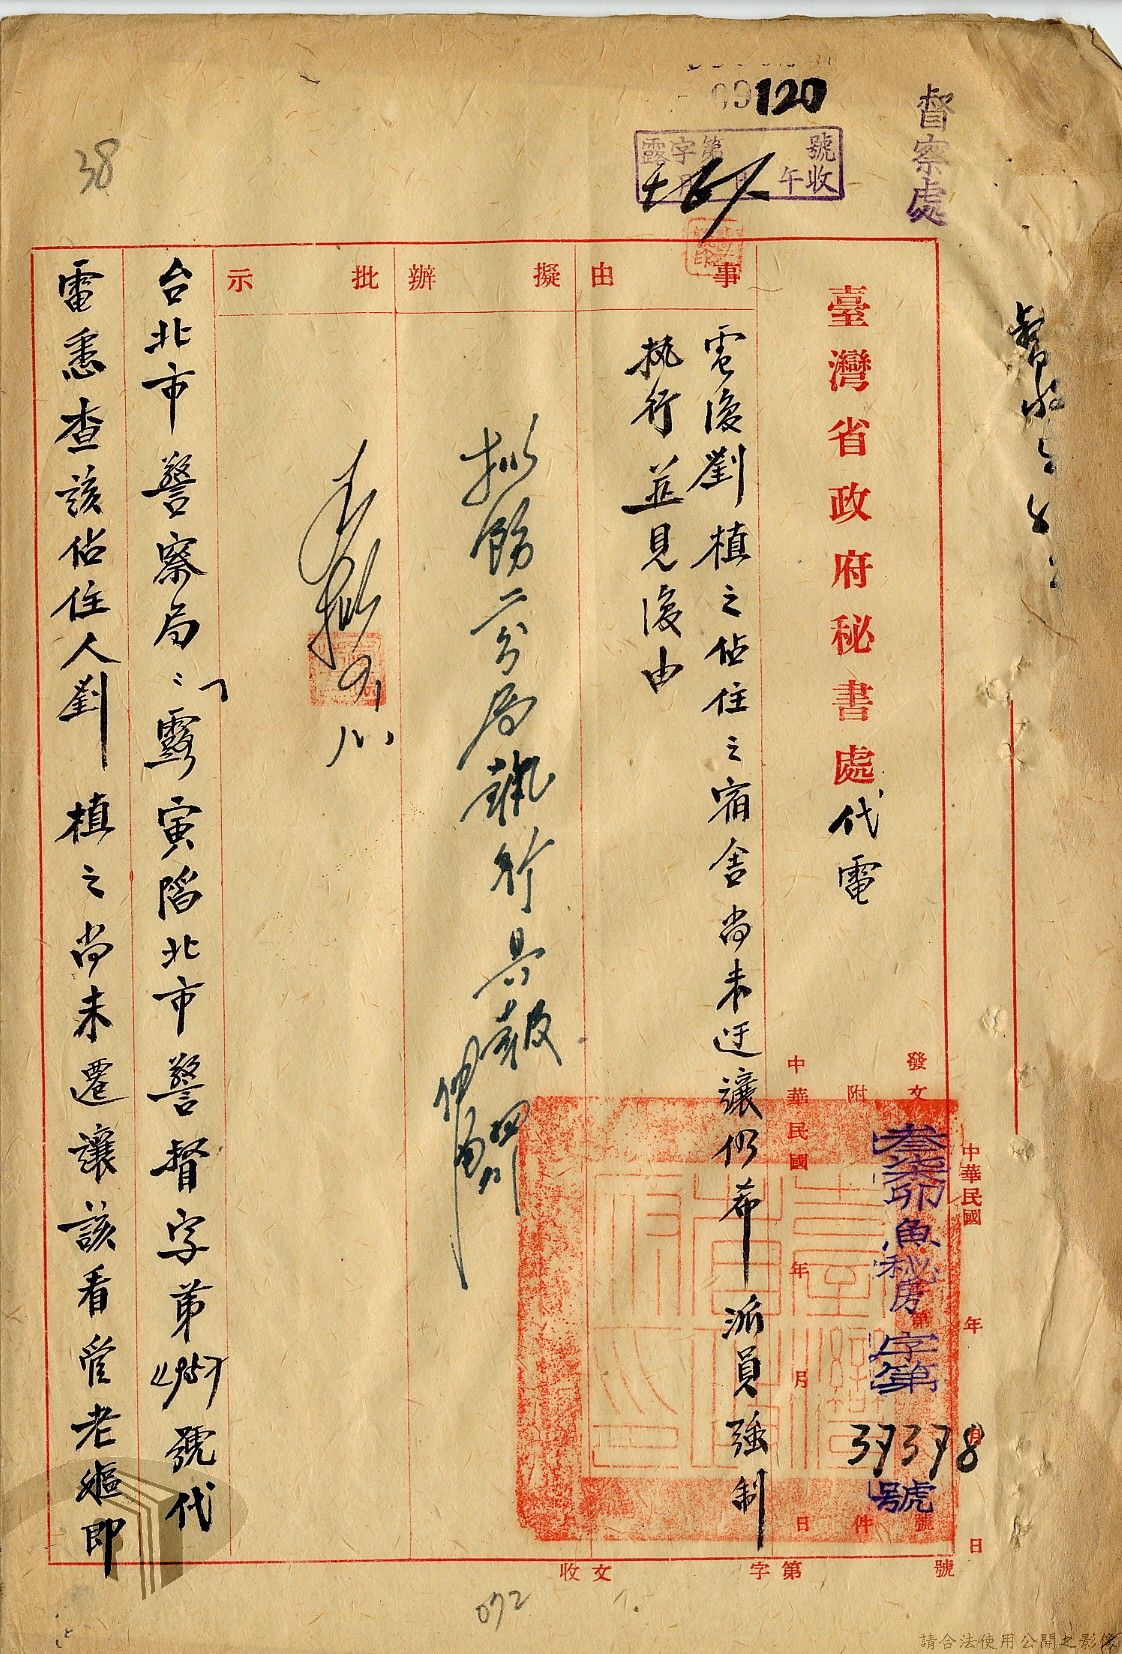 督察處
120
露字第 號
月 日 午收
38
臺灣省政府秘書處代電
發文
附
叁柒卯魚秘房字第
37378
號
第 號
件
中華民國 年 月 日
中華民國 年 月 日
事由
擬辦
批示
電復劉植之佔住之宿舍尚未迁讓仍希派員強制
执行並見復由
拟飭二分局執行具報
台北市警察局:「露寅陷北市警督字第4957號代
電悉查該佔住人劉植之尚未遷讓該看管老嫗即
收文 字第 號
072
請合法使用公開之影像